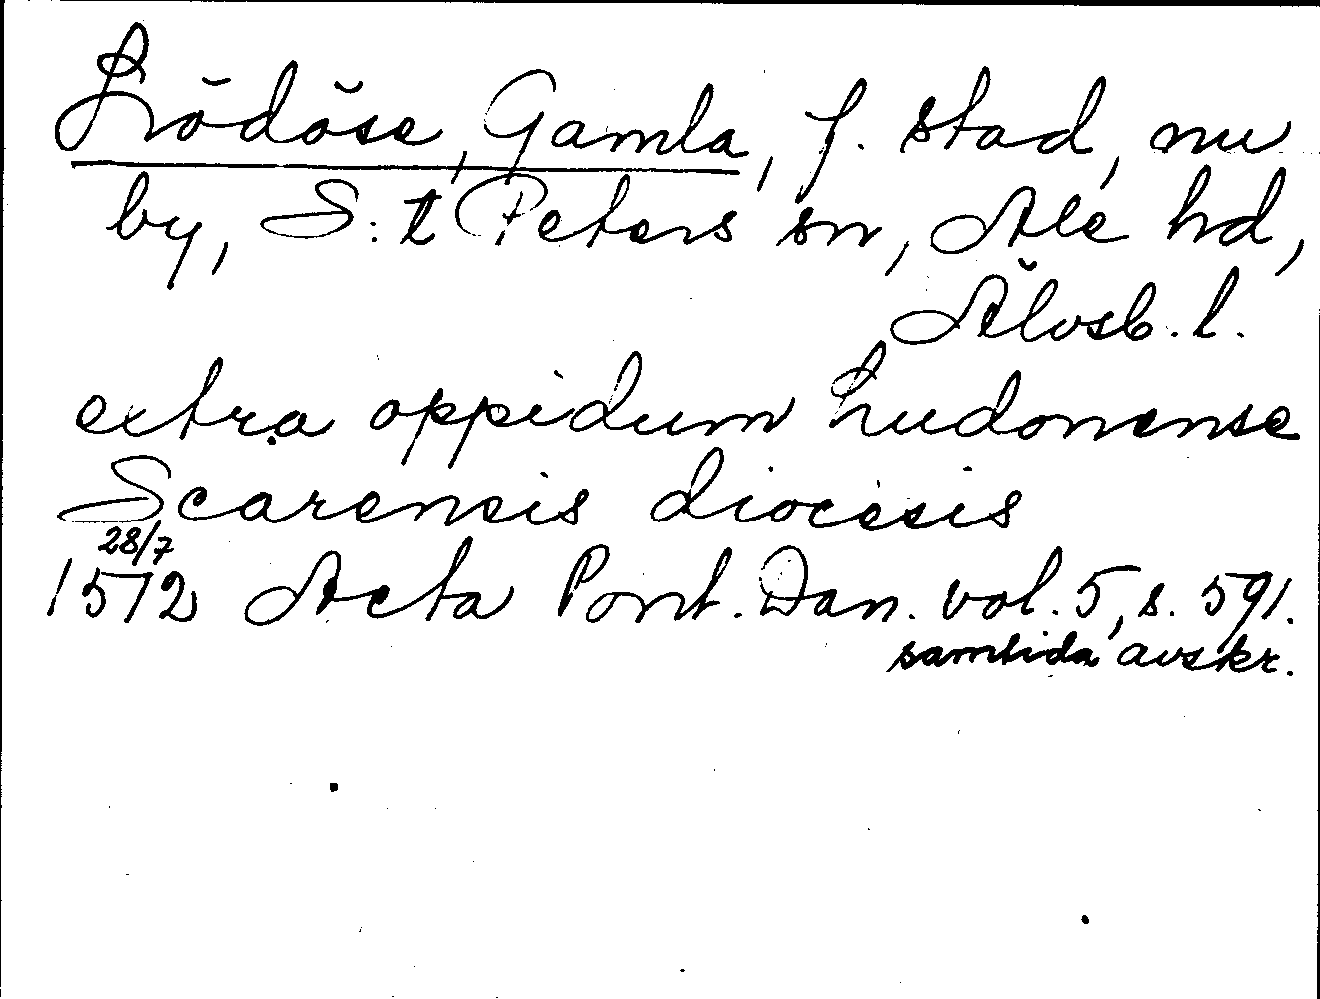 Lödöse, Gamla, f. stad, nu
by, S:t Peters sn, Ale hd,
Älvsb. l.
extra oppidum Ludonense
Scarensis diocesis
28/7
1512 Acta Pont. Dan. vol. 5, s. 591.
samtida avskr.